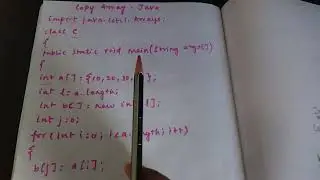 Copy Array - Java
import java.util.Arrays;
class C
{
public static void main(String args[])
{
int a[] = {10, 20, 30, };
int l = a.length;
int b[] = new int [l];
int j=0;
for (int i=0; i<a.length; i++)
{
b[j] = a[i];